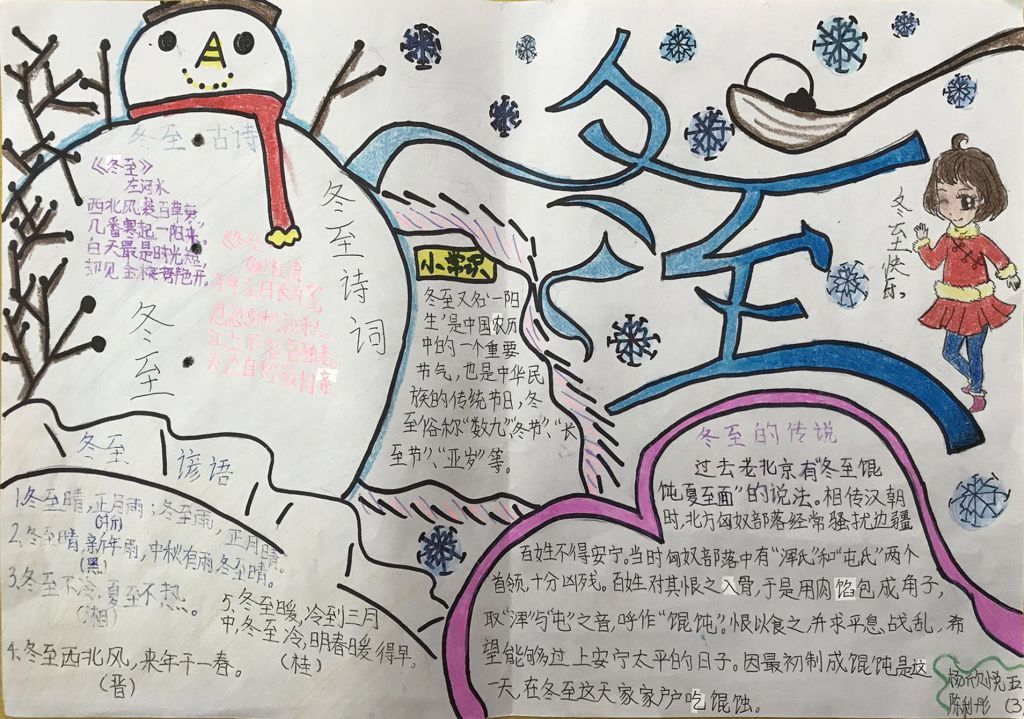 冬至 古诗
《冬至》
左河水
西北风袭百草衰
几番寒起一阳来。
白天最是时光短
却见金梅竞艳开。
年年至月长为客
江上形容吾独老
天边自
冬至诗词
冬至
小常识
冬至又名“一阳
生”是中国农历
中的一个重要
节气，也是中华民
族的传统节日，冬
至俗称“数九”、“冬节”、“长
至节”、“亚岁”等。
冬至
冬至快乐。
冬至的传说
过去老北京有“冬至馄
饨夏至面”的说法。相传汉朝
时，北方匈奴部落经常骚扰边疆
百姓不得安宁。当时匈奴部落中有“浑氏”和“屯氏”两个
首领，十分凶残。百姓对其恨之入骨，于是用肉馅包成角子，
取“浑”与“屯”之音，呼作“馄饨”。恨以食之，并求平息战乱，希
望能够过上安宁太平的日子。因最初制成馄饨是这
一天，在冬至这天家家户户吃馄蚀。
冬至 谚语
1.冬至晴，正月雨；冬至雨，正月晴。
2.冬至晴，新年雨，中秋有雨冬至晴。
(黑)
3.冬至不冷，夏至不热。
(湘)
4.冬至西北风，来年干一春。
(晋)
5.冬至暖，冷到三月
中，冬至冷，明春暖得早。
(桂)
杨欣悦 五
陈利彤 (3